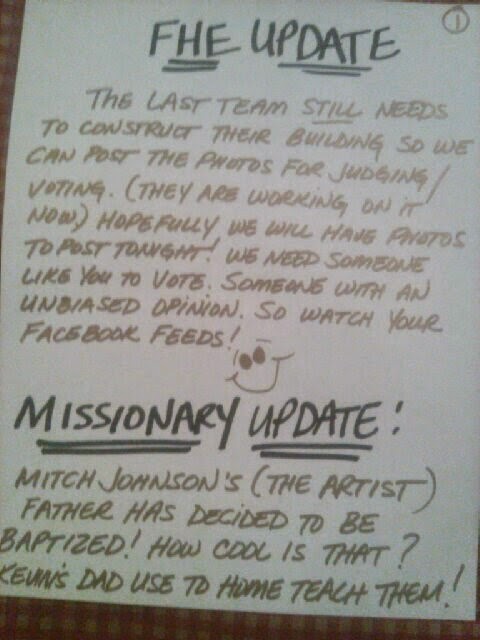 1
FHE UPDATE
THE LAST TEAM STILL NEEDS
TO CONSTRUCT THEIR BUILDING SO WE
CAN POST THE PHOTOS FOR JUDGING/
VOTING. (THEY ARE WORKING ON IT
NOW) HOPEFULLY WE WILL HAVE PHOTOS
TO POST TONIGHT! WE NEED SOMEONE
LIKE YOU TO VOTE. SOMEONE WITH AN
UNBIASED OPINION. SO WATCH YOUR
FACEBOOK FEEDS!
MISSIONARY UPDATE:
MITCH JOHNSON'S (THE ARTIST)
FATHER HAS DECIDED TO BE
BAPTIZED! HOW COOL IS THAT?
KEVIN'S DAD USE TO HOME TEACH THEM!